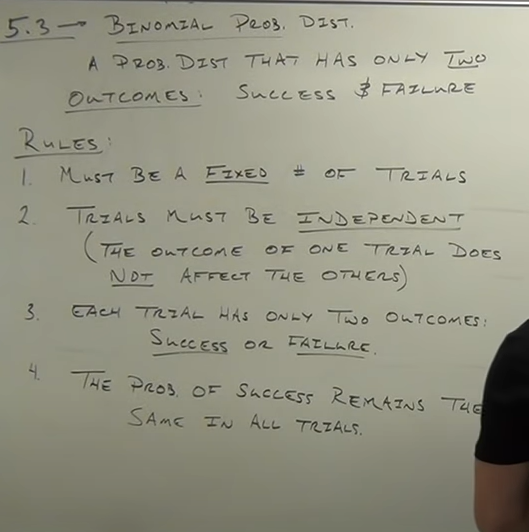 5.3 → BINOMIAL PROB. DIST.
A PROB. DIST THAT HAS ONLY TWO
OUTCOMES: SUCCESS & FAILURE
RULES:
1. MUST BE A FIXED # OF TRIALS
2. TRIALS MUST BE INDEPENDENT
(THE OUTCOME OF ONE TRIAL DOES
NOT AFFECT THE OTHERS)
3. EACH TRIAL HAS ONLY TWO OUTCOMES:
SUCCESS OR FAILURE.
4. THE PROB. OF SUCCESS REMAINS THE
SAME IN ALL TRIALS.